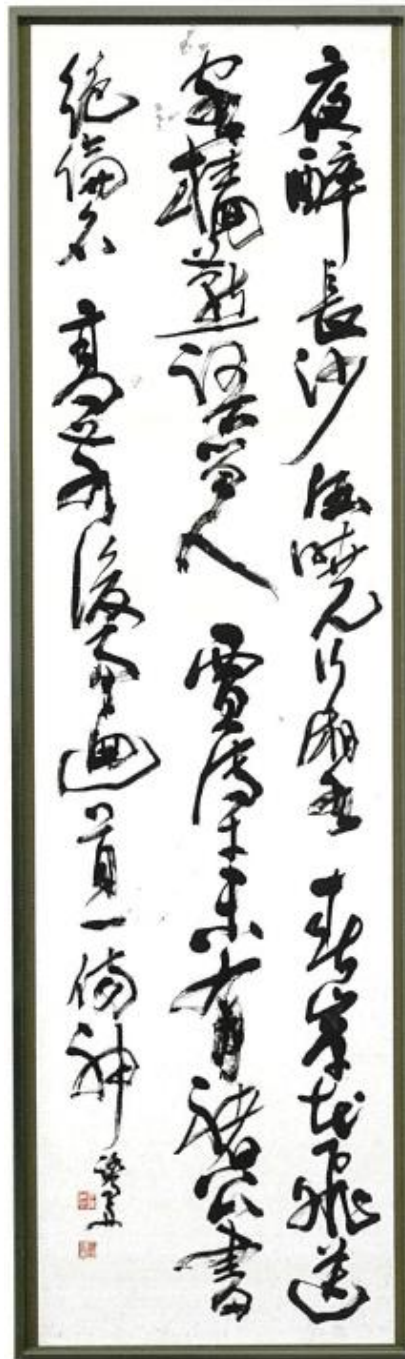 夜醉長沙酒曉行湘水春岸花飛送
客檣燕語留人賈傅才未有褚公書
絶倫名高前後事迴首一傷神